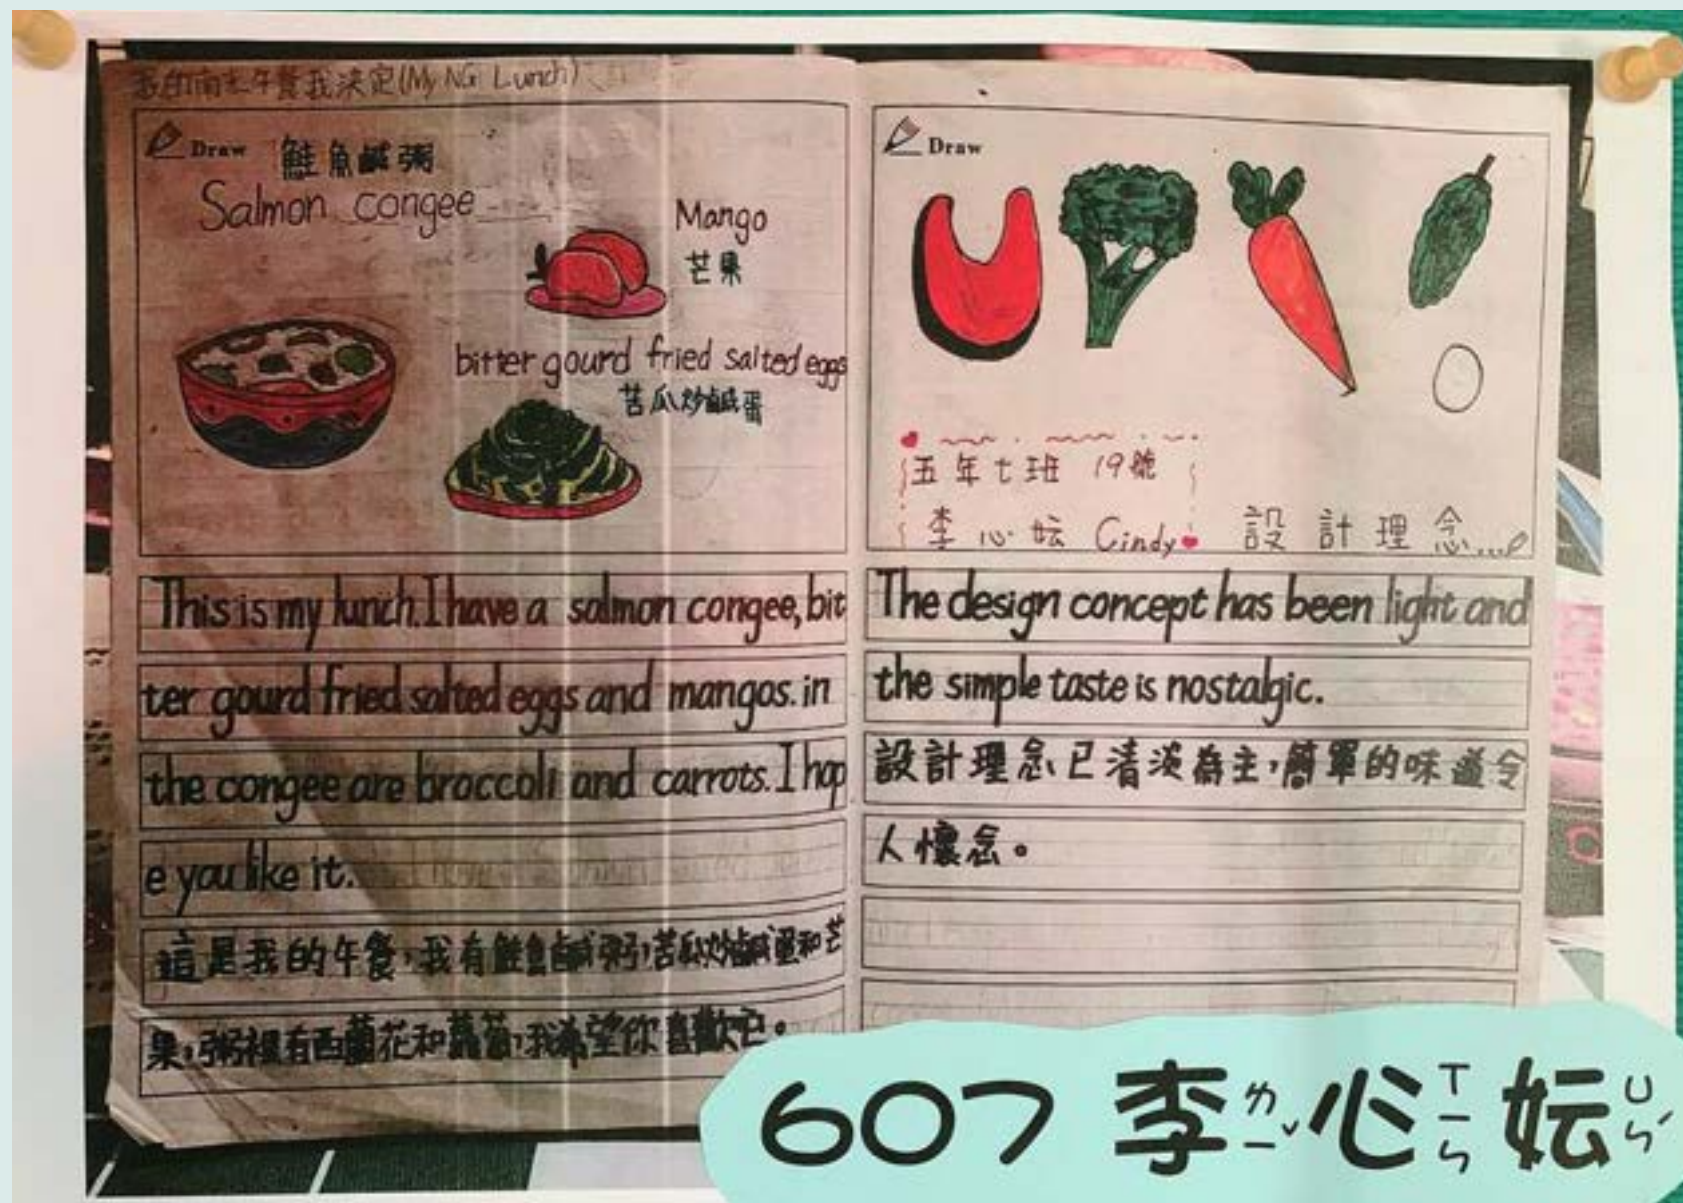 我的南大午餐我決定(My NG Lunch)
Draw
鮭魚鹹粥
Salmon congee
Mango
芒果
bitter gourd fried salted eggs
苦瓜炒鹹蛋
This is my lunch. I have a salmon congee, bit
ter gourd fried salted eggs and mangos. in
the congee are broccoli and carrots. I hop
e you like it.
這是我的午餐,我有鮭魚鹹粥,苦瓜炒鹹蛋和芒
果,粥裡有西蘭花和蘿蔔,我希望你喜歡它。
Draw
五年七班 19號
李心妘 Cindy
設計理念...
The design concept has been light and
the simple taste is nostalgic.
設計理念已清淡為主,簡單的味道令
人懷念。
607 李ㄌㄧˇ心ㄒㄧㄣ妘ㄩㄣˊ